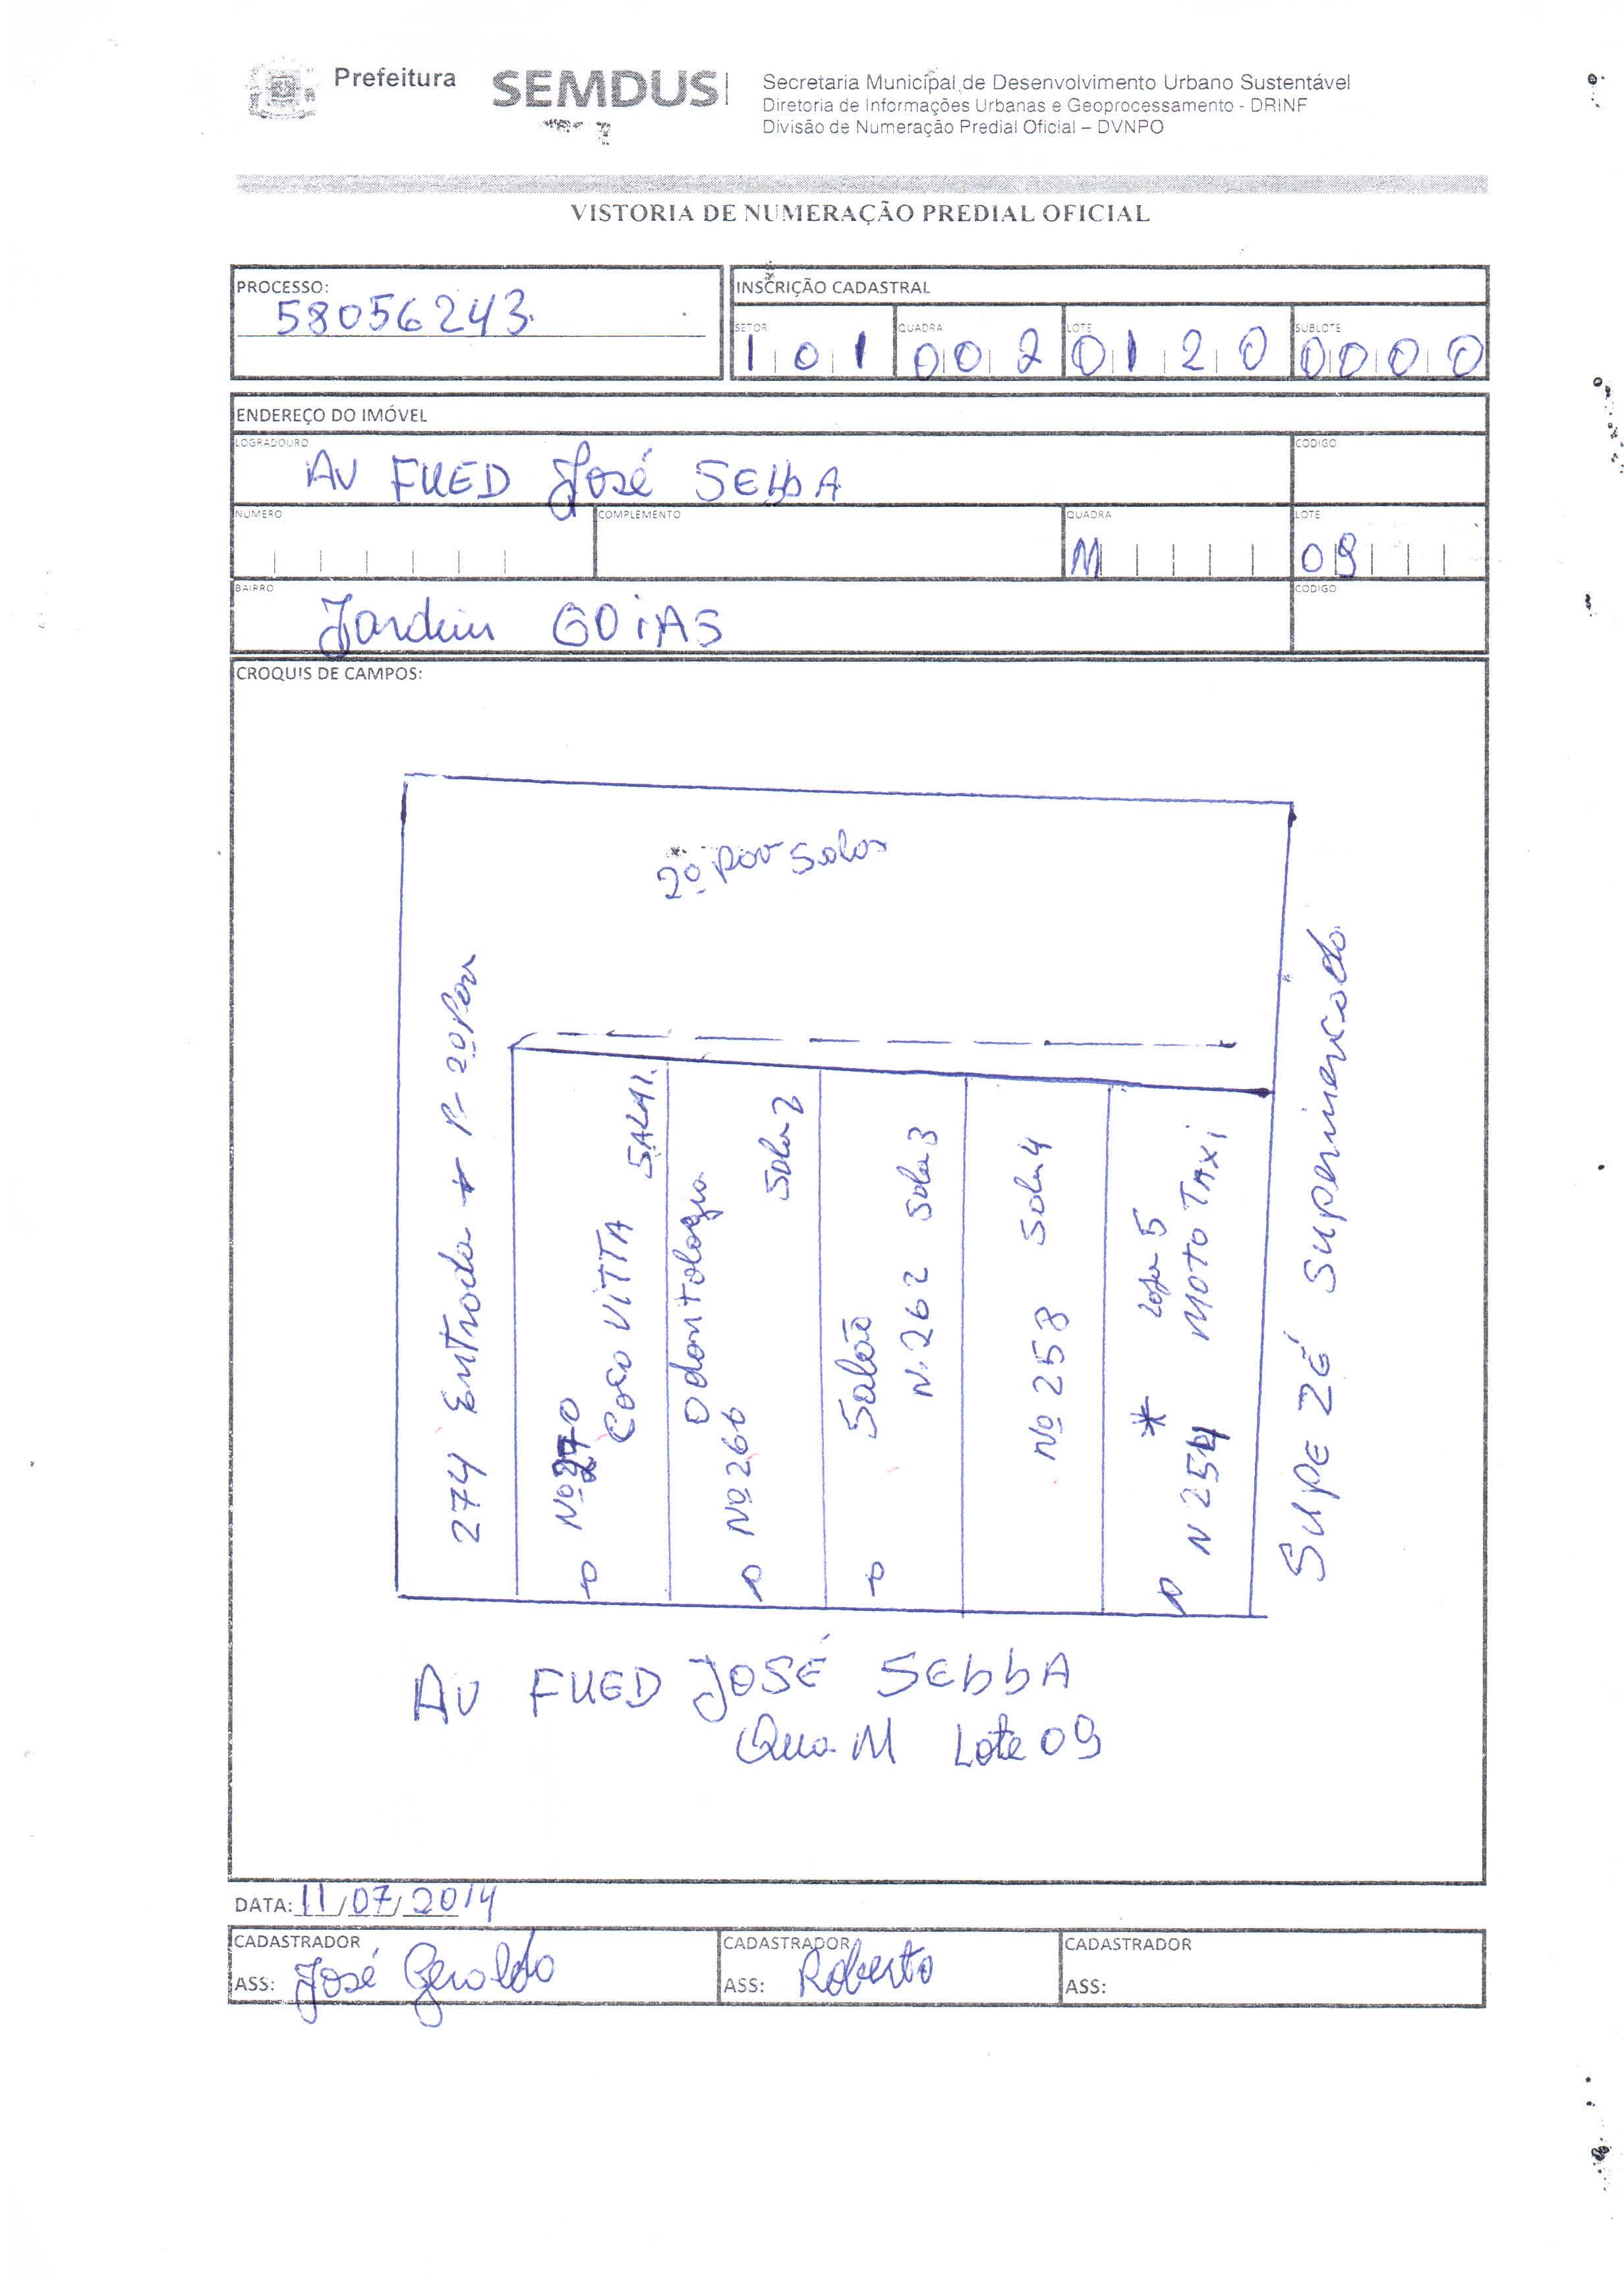 Prefeitura
SEMDUS
Secretaria Municipal de Desenvolvimento Urbano Sustentável
Diretoria de Informações Urbanas e Geoprocessamento - DRINF
Divisão de Numeração Predial Oficial – DVNPO
VISTORIA DE NUMERAÇÃO PREDIAL OFICIAL
PROCESSO:
58056243
INSCRIÇÃO CADASTRAL
SETOR QUADRA LOTE SUBLOTE
101 002 0120 0000
ENDEREÇO DO IMÓVEL
LOGRADOURO CODIGO
AV FUED José SEbbA
NUMERO COMPLEMENTO QUADRA LOTE
M 09
BAIRRO CODIGO
Jardim GOiAS
CROQUIS DE CAMPOS:
2º Pav Salas
274 Entrada P- 2º Pav
Nº 270
Coco ViTTA
SALA 1.
Odontologia
Nº 266
Sala 2
Salão
N. 262 Sala 3
Nº 258 Sala 4
* Loja 5
N 254 MOTO TAXi
SUPE ZÉ Supermercado
AV FUED JOSÉ SEbbA
Qua. M Lote 09
DATA: 11/07/2014
CADASTRADOR CADASTRADOR CADASTRADOR
ASS: José Geraldo ASS: Roberto ASS: